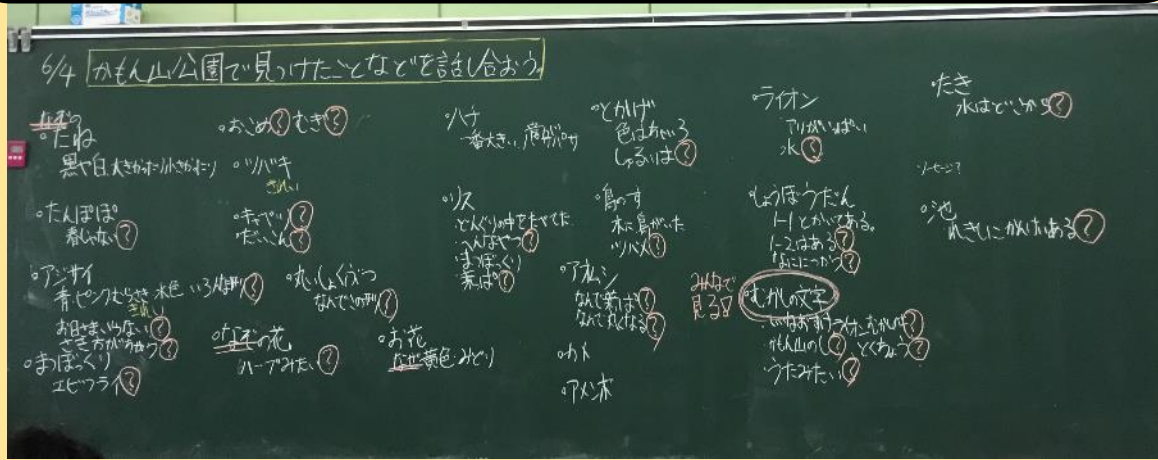 6/4 かもん山公園で見つけたことなどを話し合おう。
なぞの
・たね
黒や白、大きかったり小さかったり
・たんぽぽ
春じゃない?
・アジサイ
青、ピンク、むらさき 水色 いろんな形?
きれい
お日さまいらない?
さき方がちがう?
・まつぼっくり
エビフライ?
・おこめ?むぎ?
・ツバキ
きれい
・キャベツ?
・だいこん?
・丸いしょくぶつ
なんでこの形?
・なぞの花
ハーブみたい?
・お花
なぞ 黄色・みどり
・ハチ
一番大きい、
・リス
どんぐりの中をたべてた
・どんなやつ?
・まつぼっくり
葉っぱ?
・とかげ
色はちゃいろ
しゅるいは?
・鳥のす
木に鳥がいた
ツバメ?
なんで葉っぱ?
なんで丸くなる?
・カメ
・アメンボ
・ライオン
アリがいっぱい
水?
・しょうぼううだん
1-1とかいてある。
1-2はある?
なににつかう?
みんなで
見る
・むかしの文字
かもん山のし? とくちょう?
うたみたい?
・たき
水はどこから?
ソーセージ?
・池